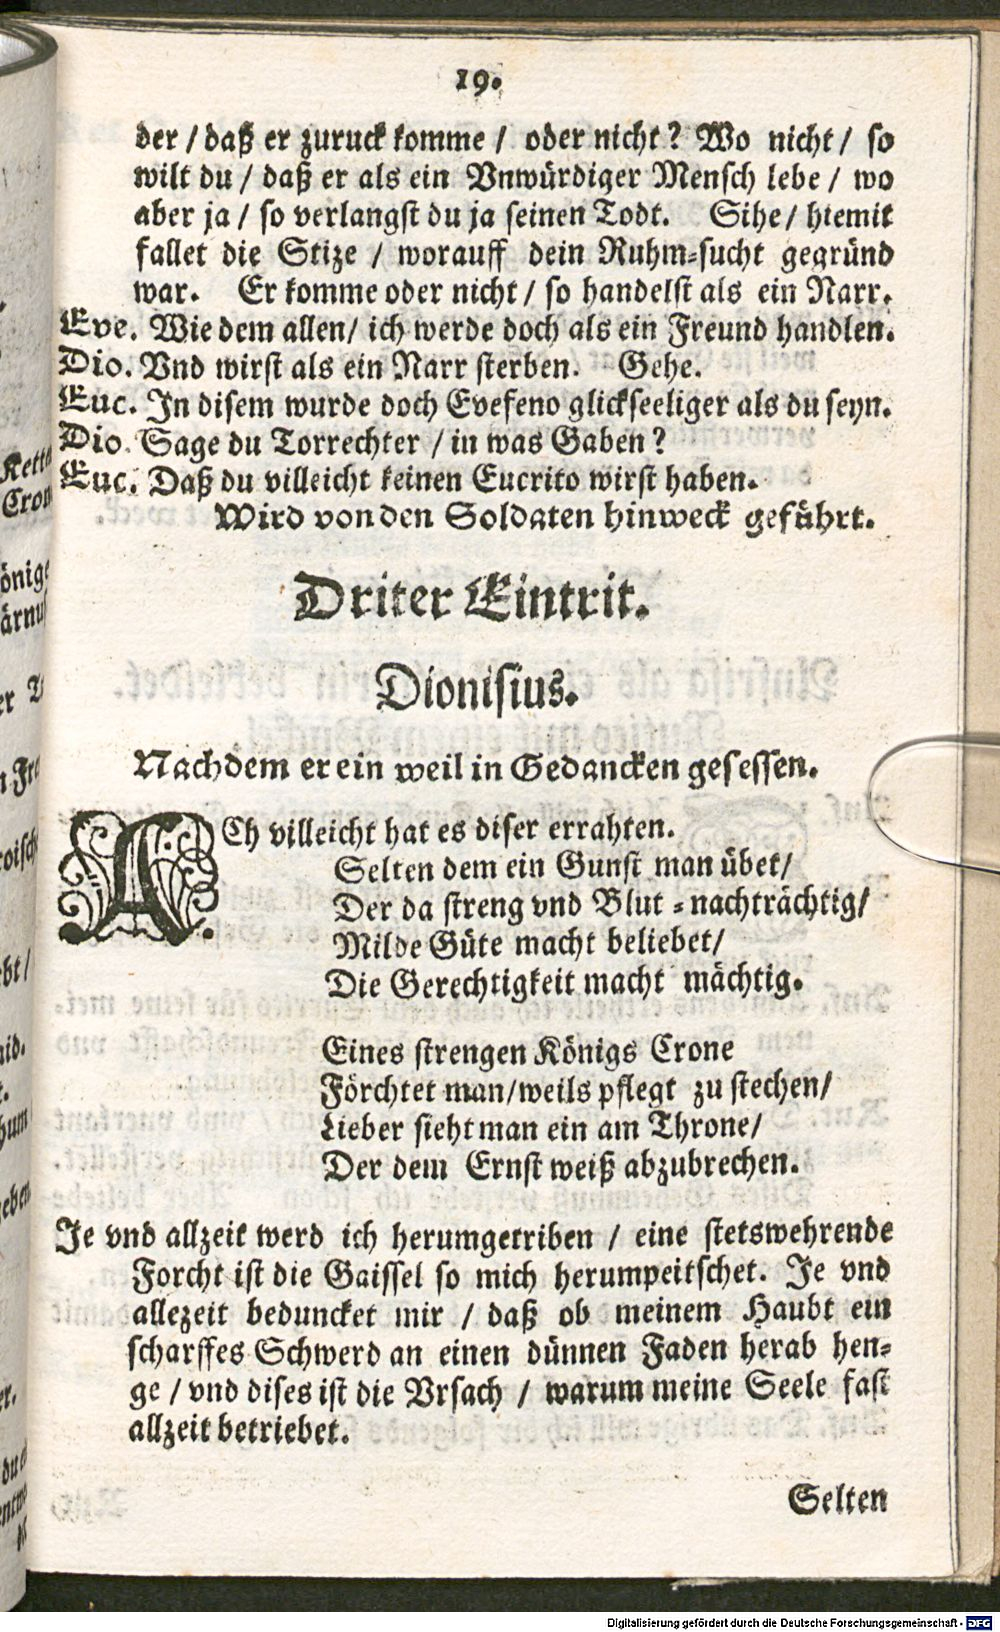 19.
der / daß er zuruck komme / oder nicht? Wo nicht / so
wilt du / daß er als ein Vnwürdiger Mensch lebe / wo
aber ja / so verlangst du ja seinen Todt. Sihe / hiemit
fallet die Stize / worauff dein Ruhm-sucht gegründ
war. Er komme oder nicht / so handelst als ein Narr.
Eve. Wie dem allen / ich werde doch als ein Freund handlen.
Dio. Vnd wirst als ein Narr sterben. Gehe.
Euc. In disem wurde doch Evefeno glickseeliger als du seyn.
Dio. Sage du Torrechter / in was Gaben?
Euc. Daß du villeicht keinen Eucrito wirst haben.
Wird von den Soldaten hinweck geführt.
Driter Eintrit.
Dionisius.
Nachdem er ein weil in Gedancken gesessen.
ACh villeicht hat es diser errahten.
Selten dem ein Gunst man übet /
Der da streng vnd Blut-nachträchtig /
Milde Güte macht beliebet /
Die Gerechtigkeit macht mächtig.
Eines strengen Königs Crone
Förchtet man / weils pflegt zu stechen /
Lieber sieht man ein am Throne /
Der dem Ernst weiß abzubrechen.
Je vnd allzeit werd ich herumgetriben / eine stetswehrende
Forcht ist die Gaissel so mich herumpeitschet. Je vnd
allezeit beduncket mir / daß ob meinem Haubt ein
scharffes Schwerd an einen dünnen Faden herab hen-
ge / vnd dises ist die Vrsach / warum meine Seele fast
allzeit betriebet.
Selten
Digitalisierung gefördert durch die Deutsche Forschungsgemeinschaft - DFG